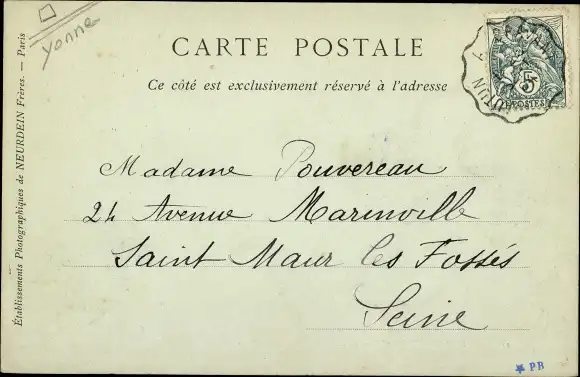 Yonne
CARTE POSTALE
Ce côté est exclusivement réservé à l'adresse
Établissements Photographiques de NEURDEIN Frères. — Paris
5
POSTES
Madame Pouvereau
24 Avenue Marinville
Saint Maur les Fossés
Seine
PB